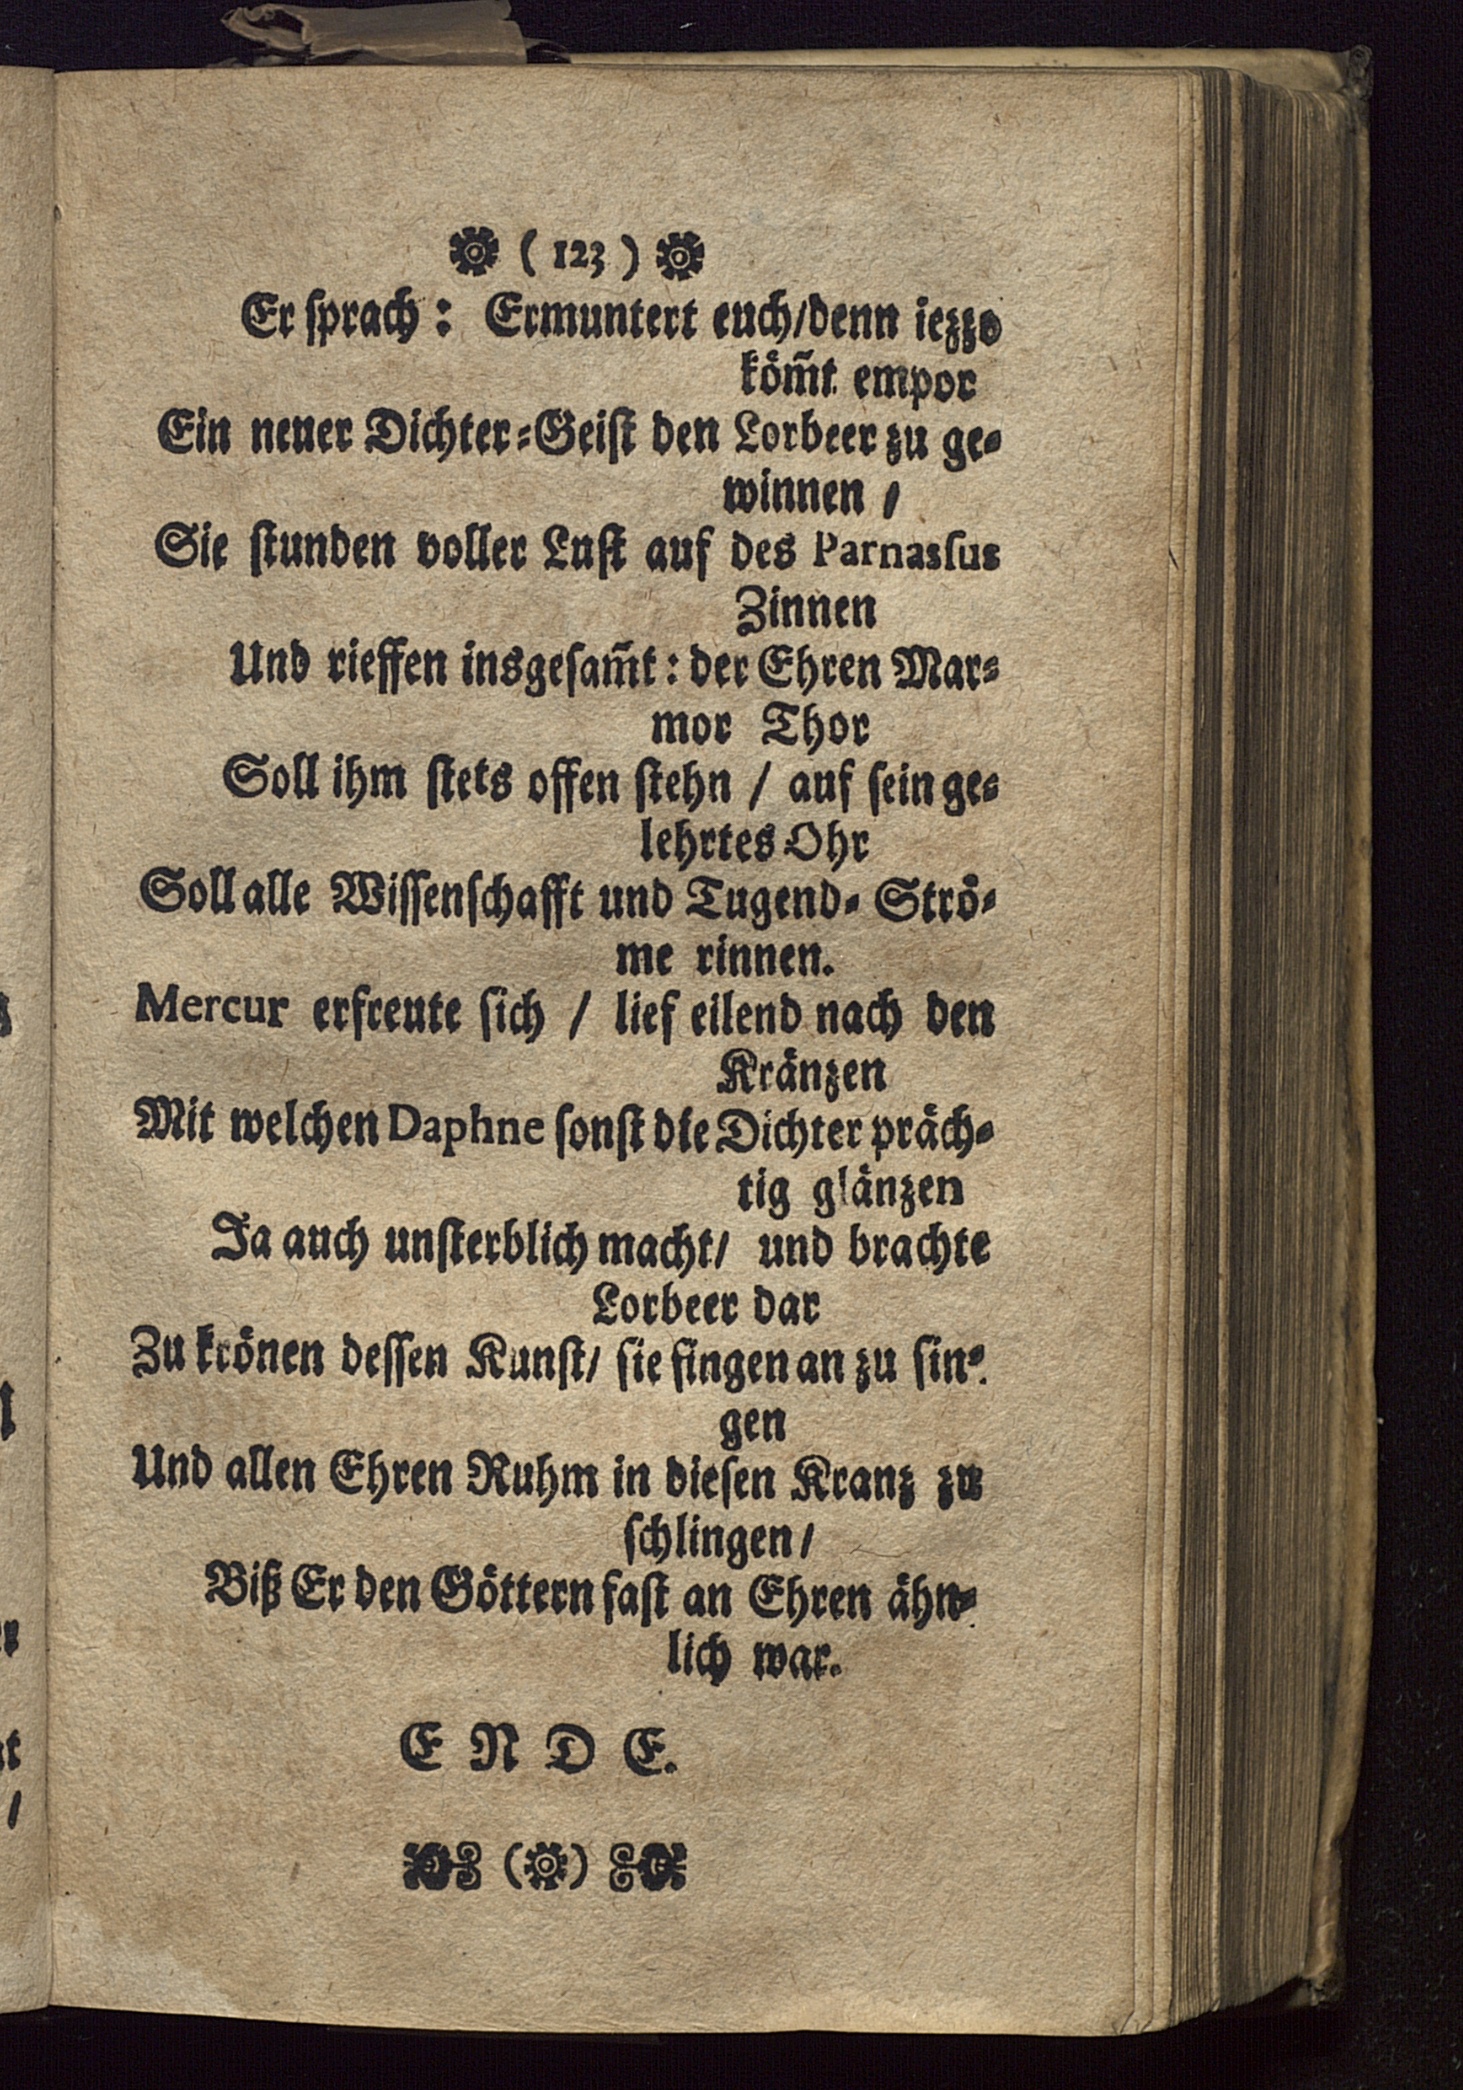 ( 123 )
Er ſprach: Ermuntert euch/denn iezzo
köm̃t empor
Ein neuer Dichter-Geiſt den Lorbeer zu ge-
winnen /
Sie ſtunden voller Luſt auf des Parnasſus
Zinnen
Und rieffen insgeſam̃t: der Ehren Mar-
mor Thor
Soll ihm ſtets offen ſtehn / auf ſein ge-
lehrtes Ohr
Soll alle Wiſſenſchafft und Tugend- Strö-
me rinnen.
Mercur erfreute ſich / lief eilend nach den
Kränzen
Mit welchen Daphne ſonſt die Dichter präch-
tig glänzen
Ja auch unſterblich macht/ und brachte
Lorbeer dar
Zu krönen deſſen Kunſt/ ſie fingen an zu ſin-
gen
Und allen Ehren Ruhm in dieſen Kranz zu
ſchlingen/
Biß Er den Göttern faſt an Ehren ähn-
lich war.
E N D E.